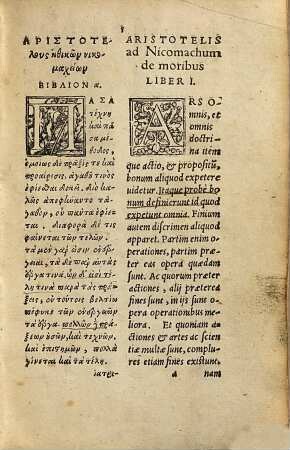 ΑΡΙΣΤΟΤΕ-
λους ἠθικῶν νικο-
μαχείων
ΒΙΒΛΙΟΝ α.
ΠΑΣΑ
τέχνη
καὶ πᾶ
σα μέ-
θοδος,
ὁμοίως δὲ πρᾶξίς τε καὶ
προαίρεσις, ἀγαθοῦ τινὸς
ἐφίεσθαι δοκεῖ. διὸ κα-
λῶς ἀπεφήναντο τἀ-
γαθὸν, οὗ πάντα ἐφίε-
ται. Διαφορὰ δέ τις
φαίνεται τῶν τελῶν.
τὰ μὲν γάρ εἰσιν ἐνέρ-
γειαι, τὰ δὲ παρ᾽ αὐτὰς
ἔργα τινά. ὧν δ᾽ εἰσὶ τέ-
λη τινὰ παρὰ τὰς πρά-
ξεις, ἐν τούτοις βελτίω
πέφυκε τῶν ἐνεργειῶν
τὰ ἔργα. πολλῶν δὲ πρά-
ξεων οὐσῶν, καὶ τεχνῶν,
καὶ ἐπιστημῶν, πολλὰ
γίνεται καὶ τὰ τέλη.
ἰατρι-
ARISTOTELIS
ad Nicomachum
de moribus
LIBER I.
ARS O
mnis, et
omnis
doctri-
na item
que actio, & propositũ,
bonum aliquod expetere
uidetur. Itaque probè bo
num definierunt id quod
expetunt omnia. Finium
autem discrimen aliquod
apparet. Partim enim sunt
operationes, partim præ
ter eas opera quædam
sunt. Ac quorum præter
actiones, aliqui præterea
fines sunt, in ijs sunt
opera operationibus me
liora. Et quoniam &
actiones & artes ac scien
tiæ multæ sunt, complu-
res etiam fines existunt.
a nam